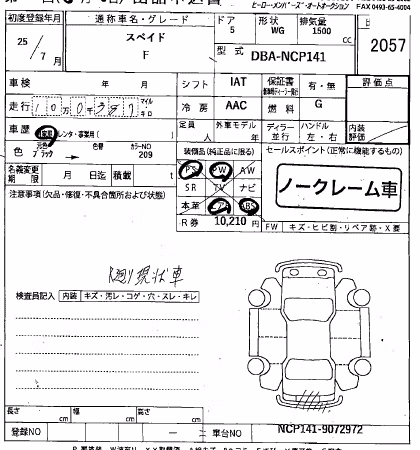 ヒーロー・メンバーズ・オートオークション FAX 0493-65-4004
初度登録年月 通称車名・グレード ドア 形状 排気量
25 / 7月 スペイド F 5 WG 1500 cc
型式 DBA-NCP141
2057
車検 年 月 シフト IAT 保証書 有・無 評価点
走行 マイル キロ 冷房 AAC 燃料 G
車歴 自家用 レンタ・事業用( ) 定員 人 外車モデル 年 ディーラー 並行 ハンドル 左・右 内装評価
色 元色 ブラック 色替 カラーNO 209
装備品(純正品に限る) セールスポイント(正常に機能するもの)
名義変更期限 月 日迄 積載 t
PS PW AW
SR TV ナビ
本革 エアB ABS
R券 10,210 円
ノークレーム車
注意事項(欠品・修復・不具合箇所および状態)
FW キズ・ヒビ割・リペア跡・X要
現状車
検査員記入 内装 キズ・汚レ・コゲ・穴・スレ・キレ
長さ cm 幅 cm 高さ cm
登録NO ー 車台NO NCP141-9072972